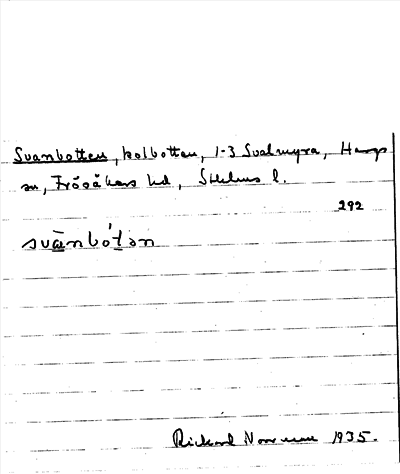 Svanbotten, kolbotten, 1-3 Svalmyra, Hargs
sn, Frösåkers hd, Sthlms l.
292
svānbótən
Rickard Norrman 1935.